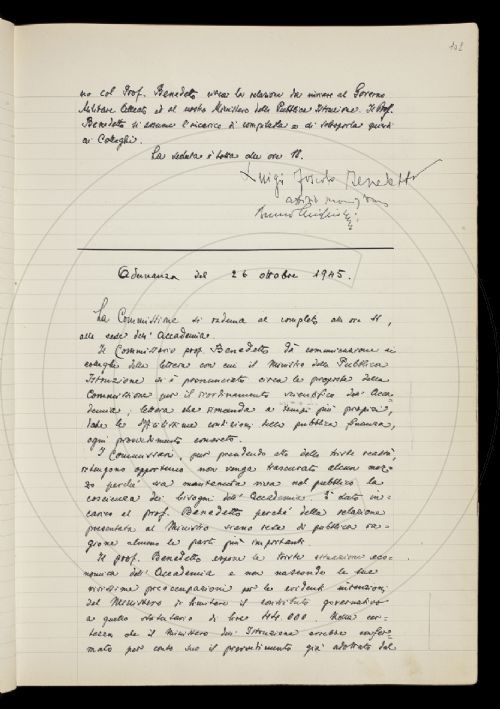 101
no col Prof. Benedetto circa la relazione da inviare al Governo
Militare Alleato ed al nostro Ministero della Pubblica Istruzione. Il Prof.
Benedetto si assume l'incarico di completarla e di sottoporla quindi
ai Colleghi.
La seduta è tolta alle ore 18.
Luigi Foscolo Benedetto
Adunanza del 26 ottobre 1945.
La Commissione si raduna al completo alle ore 11,
alla sede dell'Accademia.
Il Commissario prof. Benedetto dà comunicazione ai
colleghi della lettera con cui il Ministro della Pubblica
Istruzione si è pronunciato circa le proposte della
Commissione per il riordinamento scientifico dell'Acca-
demia; lettera che rimanda a tempi più propizi,
date le difficilissime condizioni della pubblica finanza,
ogni provvedimento concreto.
I Commissari, pur prendendo atto della triste realtà,
ritengono opportuno non venga trascurato alcun mez-
zo perché sia mantenuta viva nel pubblico la
coscienza dei bisogni dell'Accademia. È dato in-
carico al prof. Benedetto perché della relazione
presentata al Ministro siano rese di pubblica ra-
gione almeno le parti più importanti.
Il prof. Benedetto espone la triste situazione eco-
nomica dell'Accademia e non nasconde le sue
vivissime preoccupazioni per le evidenti intenzioni
del Ministero di limitare il contributo governativo
a quello statutario di lire 44.000. Nella cer-
tezza che il Ministero dell'Istruzione avrebbe confer-
mato per conto suo il provvedimento già adottato dal